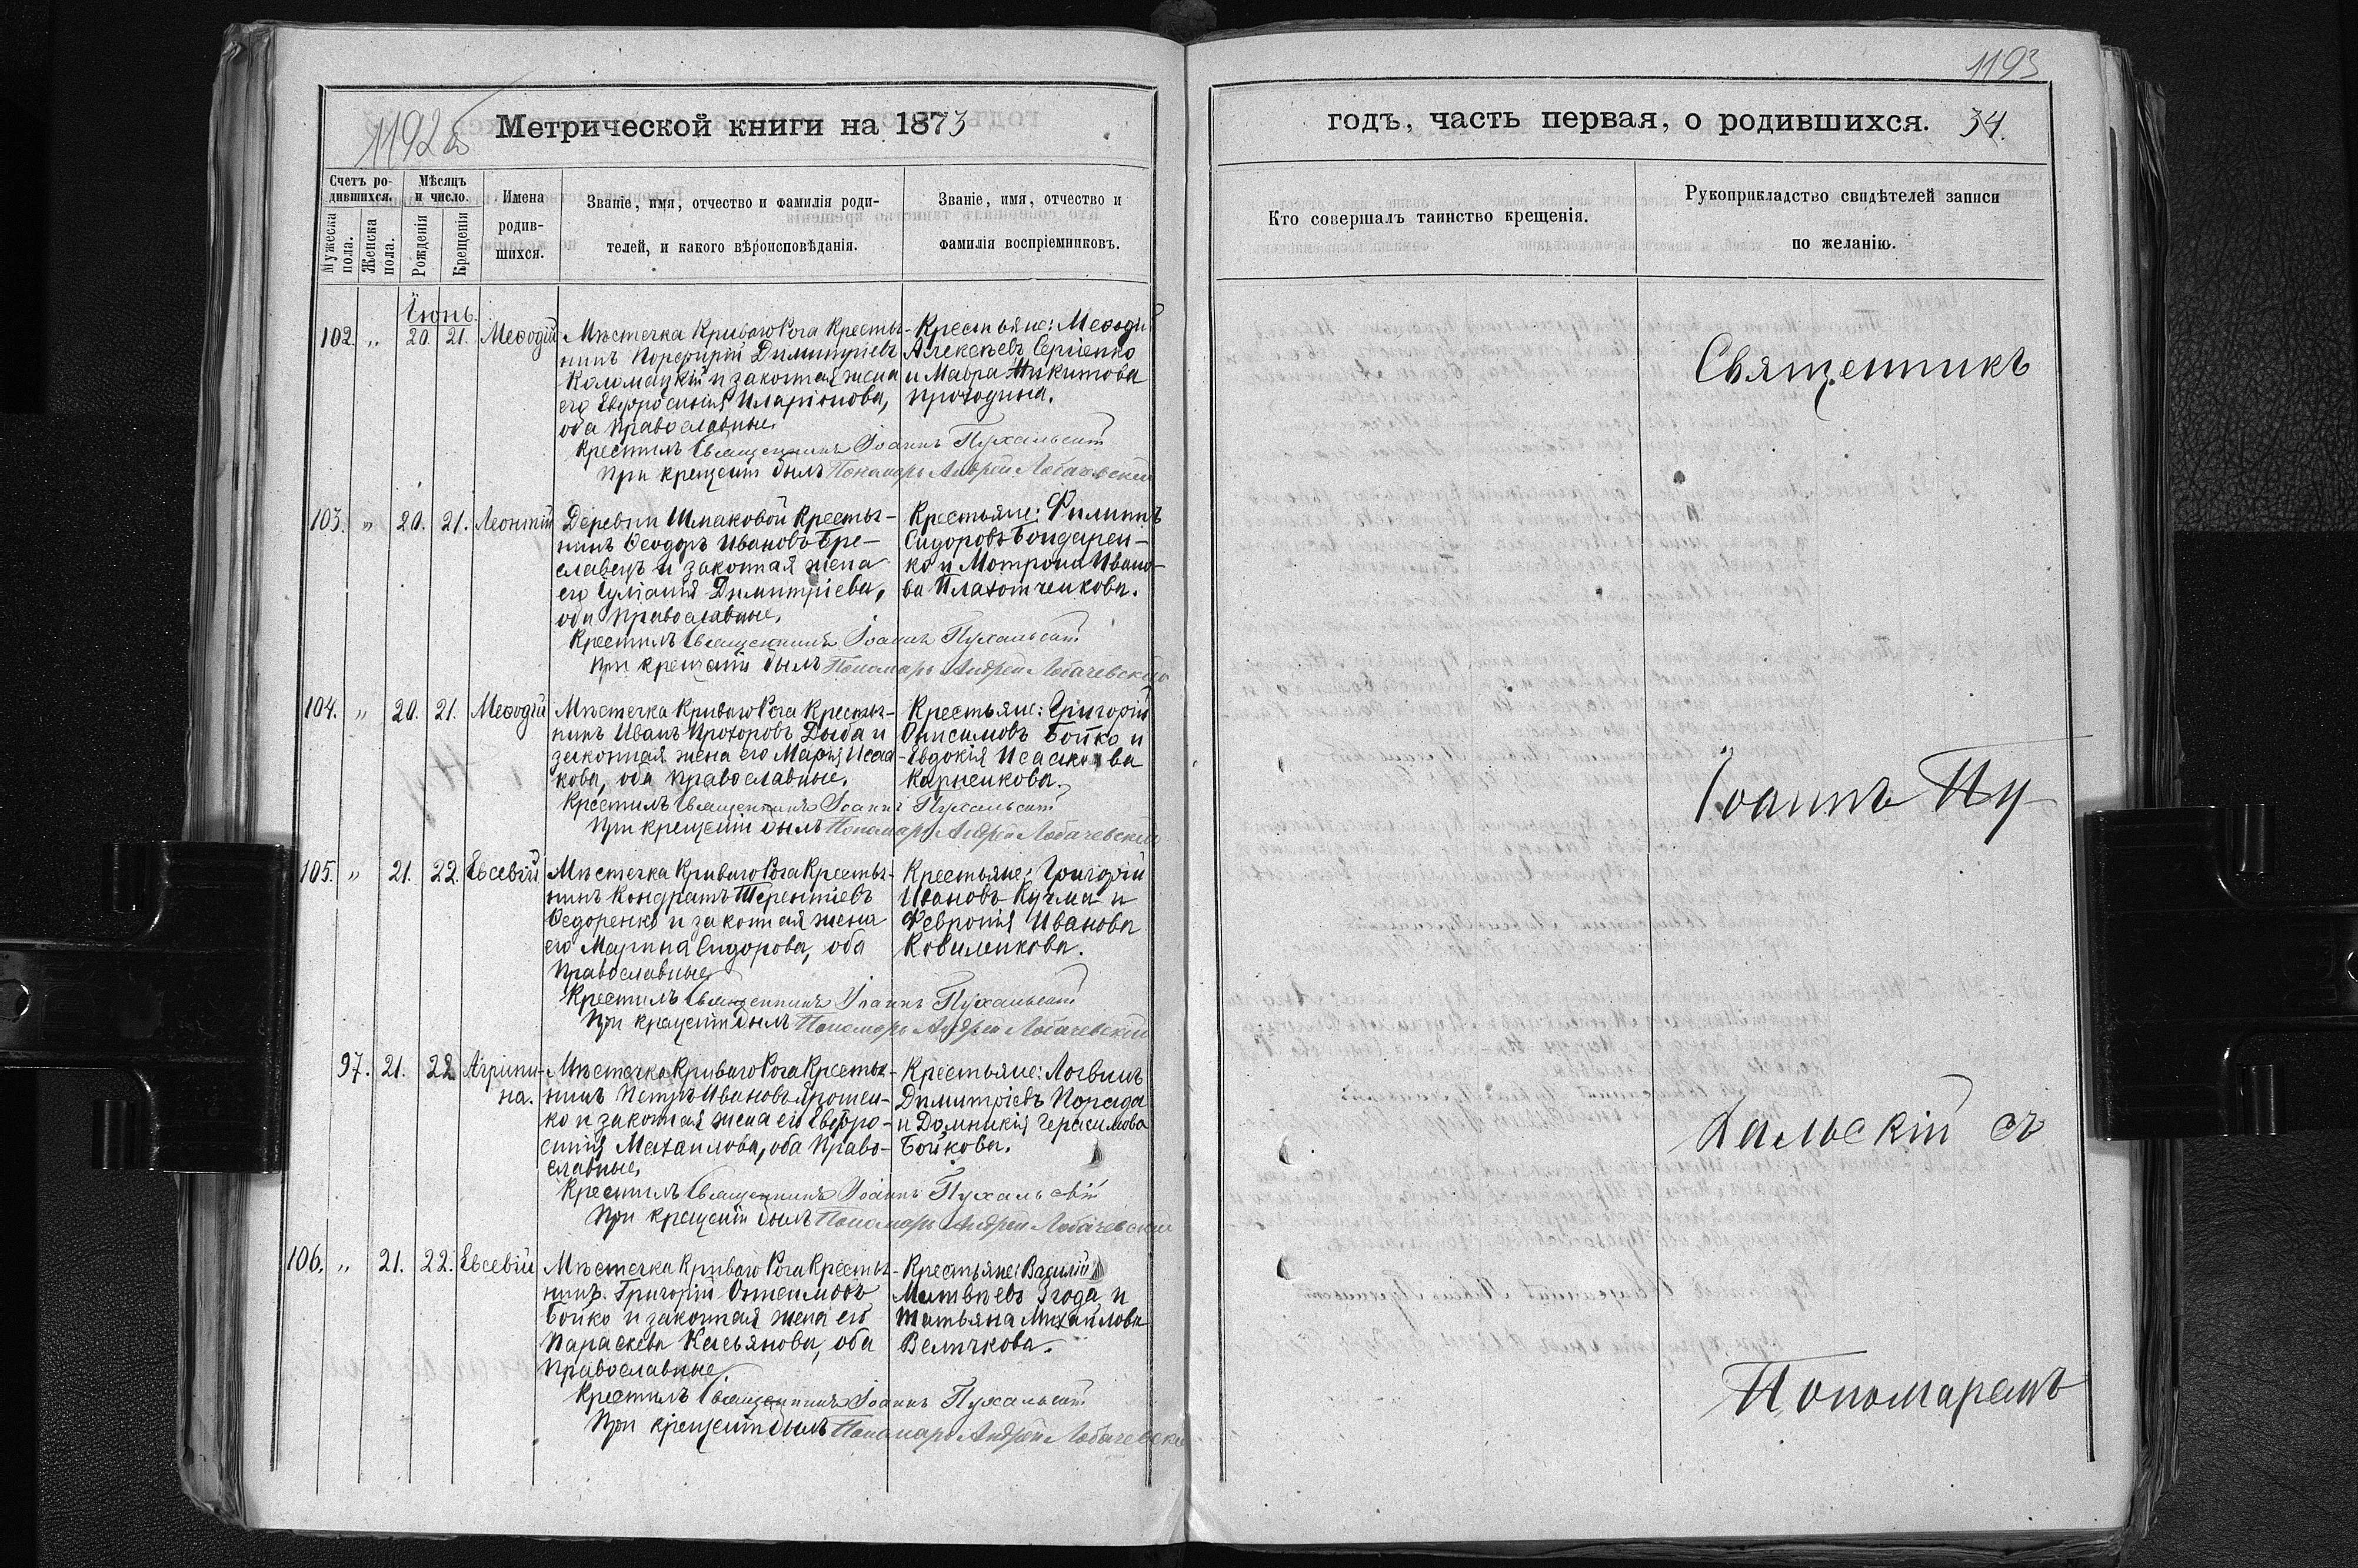 1192б
Метрической книги на 1873
Счетъ ро-
дившихся.
Мужеска пола.
Женска пола.
Мѣсяцъ
и число.
Рожденія
Крещенія
Имена
родив-
шихся.
Званіе, имя, отчество и фамилія роди-
телей, и какого вѣроисповѣданія.
Званіе, имя, отчество и
фамилія воспріемниковъ.
Іюнь.
102. „ 20. 21. Меѳодій
Мѣстечка Криваго Рога Кресть-
нинъ Порфирій Димитріевъ
Коломацкій и законная жена
его Евфросинія Иларіонова,
оба православные.
Крестьяне: Меѳодій
Алексѣевъ Сергіенко
и Мавра Никитова
Проходина.
Крестилъ Священникъ Іоаннъ Пухальскій
При крещеніи былъ Пономарь Андрей Лобачевскій
103. „ 20. 21. Леонтій
Деревни Шмаковой Кресть-
нинъ Ѳеодоръ Ивановъ Бре-
славецъ и законная жена
его Іуліанія Димитріева,
оба православные.
Крестьяне: Филиппъ
Сидоровъ Бондарен-
ко и Мотрона Ивано-
ва Плахотниченкова.
Крестилъ Священникъ Іоаннъ Пухальскій
При крещеніи былъ Пономарь Андрей Лобачевскій
104. „ 20. 21. Меѳодій
Мѣстечка Криваго Рога Кресть-
нинъ Иванъ Прохоровъ Дыба и
законная жена его Марія Исаа-
кова, оба православные.
Крестьяне: Григорій
Онисимовъ Бойко и
Евдокія Исаакова
Карпенкова.
Крестилъ Священникъ Іоаннъ Пухальскій
При крещеніи былъ Пономарь Андрей Лобачевскій
105. „ 21. 22. Евсевій
Мѣстечка Криваго Рога Кресть-
нинъ Кондратъ Терентіевъ
Ѳедоренко и законная жена
его Марина Сидорова, оба
Православные
Крестьяне: Григорій
Ивановъ Кучма и
Февронія Иванова
Ковиленкова.
Крестилъ Священникъ Іоаннъ Пухальскій
При крещеніи былъ Пономарь Андрей Лобачевскій
97. 21. 22. Агрипи-
на.
Мѣстечка Криваго Рога Кресть-
нинъ Петръ Ивановъ Ярошен-
ко и законная жена его Евфро-
синія Михаилова, оба Право-
славные.
Крестьяне: Логвинъ
Димитріевъ Порада
и Домникія Герасимова
Бойкова.
Крестилъ Священникъ Іоаннъ Пухальскій
При крещеніи былъ Пономарь Андрей Лобачевскій
106. „ 21. 22. Евсевій
Мѣстечка Криваго Рога Кресть-
нинъ Григорій Онисимовъ
Бойко и законная жена его
Параскева Касьянова, оба
Православные.
Крестьяне: Василій
Матвѣевъ Згода и
Татьяна Михайлова
Величкова.
Крестилъ Священникъ Іоаннъ Пухальскій
При крещеніи былъ Пономарь Андрей Лобачевскій
1193
годъ, часть первая, о родившихся. 34.
Кто совершалъ таинство крещенія.
Рукоприкладство свидѣтелей записи
по желанію.
Священникъ
Іоаннъ Пу-
хальскій съ
Пономаремъ